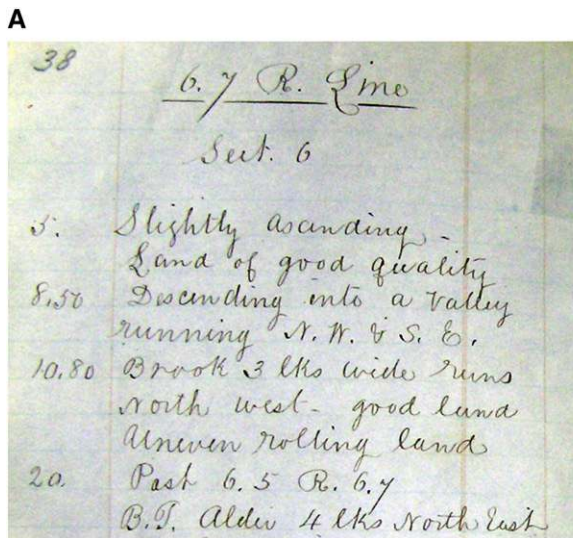 A
38
6.7 R. Line
Sect. 6
5. Slightly ascending -
Land of good quality
8,50 Descending into a valley
running N. W. & S. E.
10.80 Brook 3 lks wide runs
North west - good land
Uneven rolling land
20. Post 6.5 R. 6.7
B.T. Alder 4 lks North East